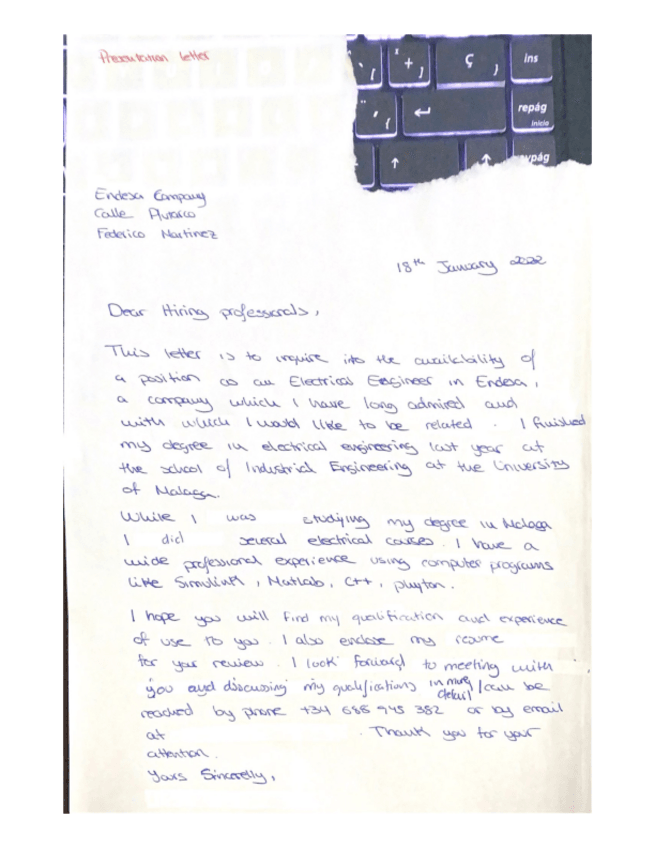 Presentation letter
` [
* + ]
ç }
ins
¨ ´ {
↵
repág
inicio
↑
↑
vpág
Endesa Company
Calle Plutarco
Federico Martinez
18th January 2022
Dear Hiring professionals,
This letter is to inquire into the availability of
a position as an Electrical Engineer in Endesa,
a company which I have long admired and
with which I would like to be related. I finished
my degree in electrical engineering last year at
the school of Industrial Engineering at the University
of Malaga.
While I was studying my degree in Malaga
I did several electrical courses. I have a
wide professional experience using computer programs
like Simulink, Matlab, C++, phyton.
I hope you will find my qualification and experience
of use to you. I also enclose my resume
for your review. I look forward to meeting with
you and discussing my qualifications in more detail I can be
reached by phone +34 686 945 382 or by email
at . Thank you for your
attention.
Yours Sincerelly,